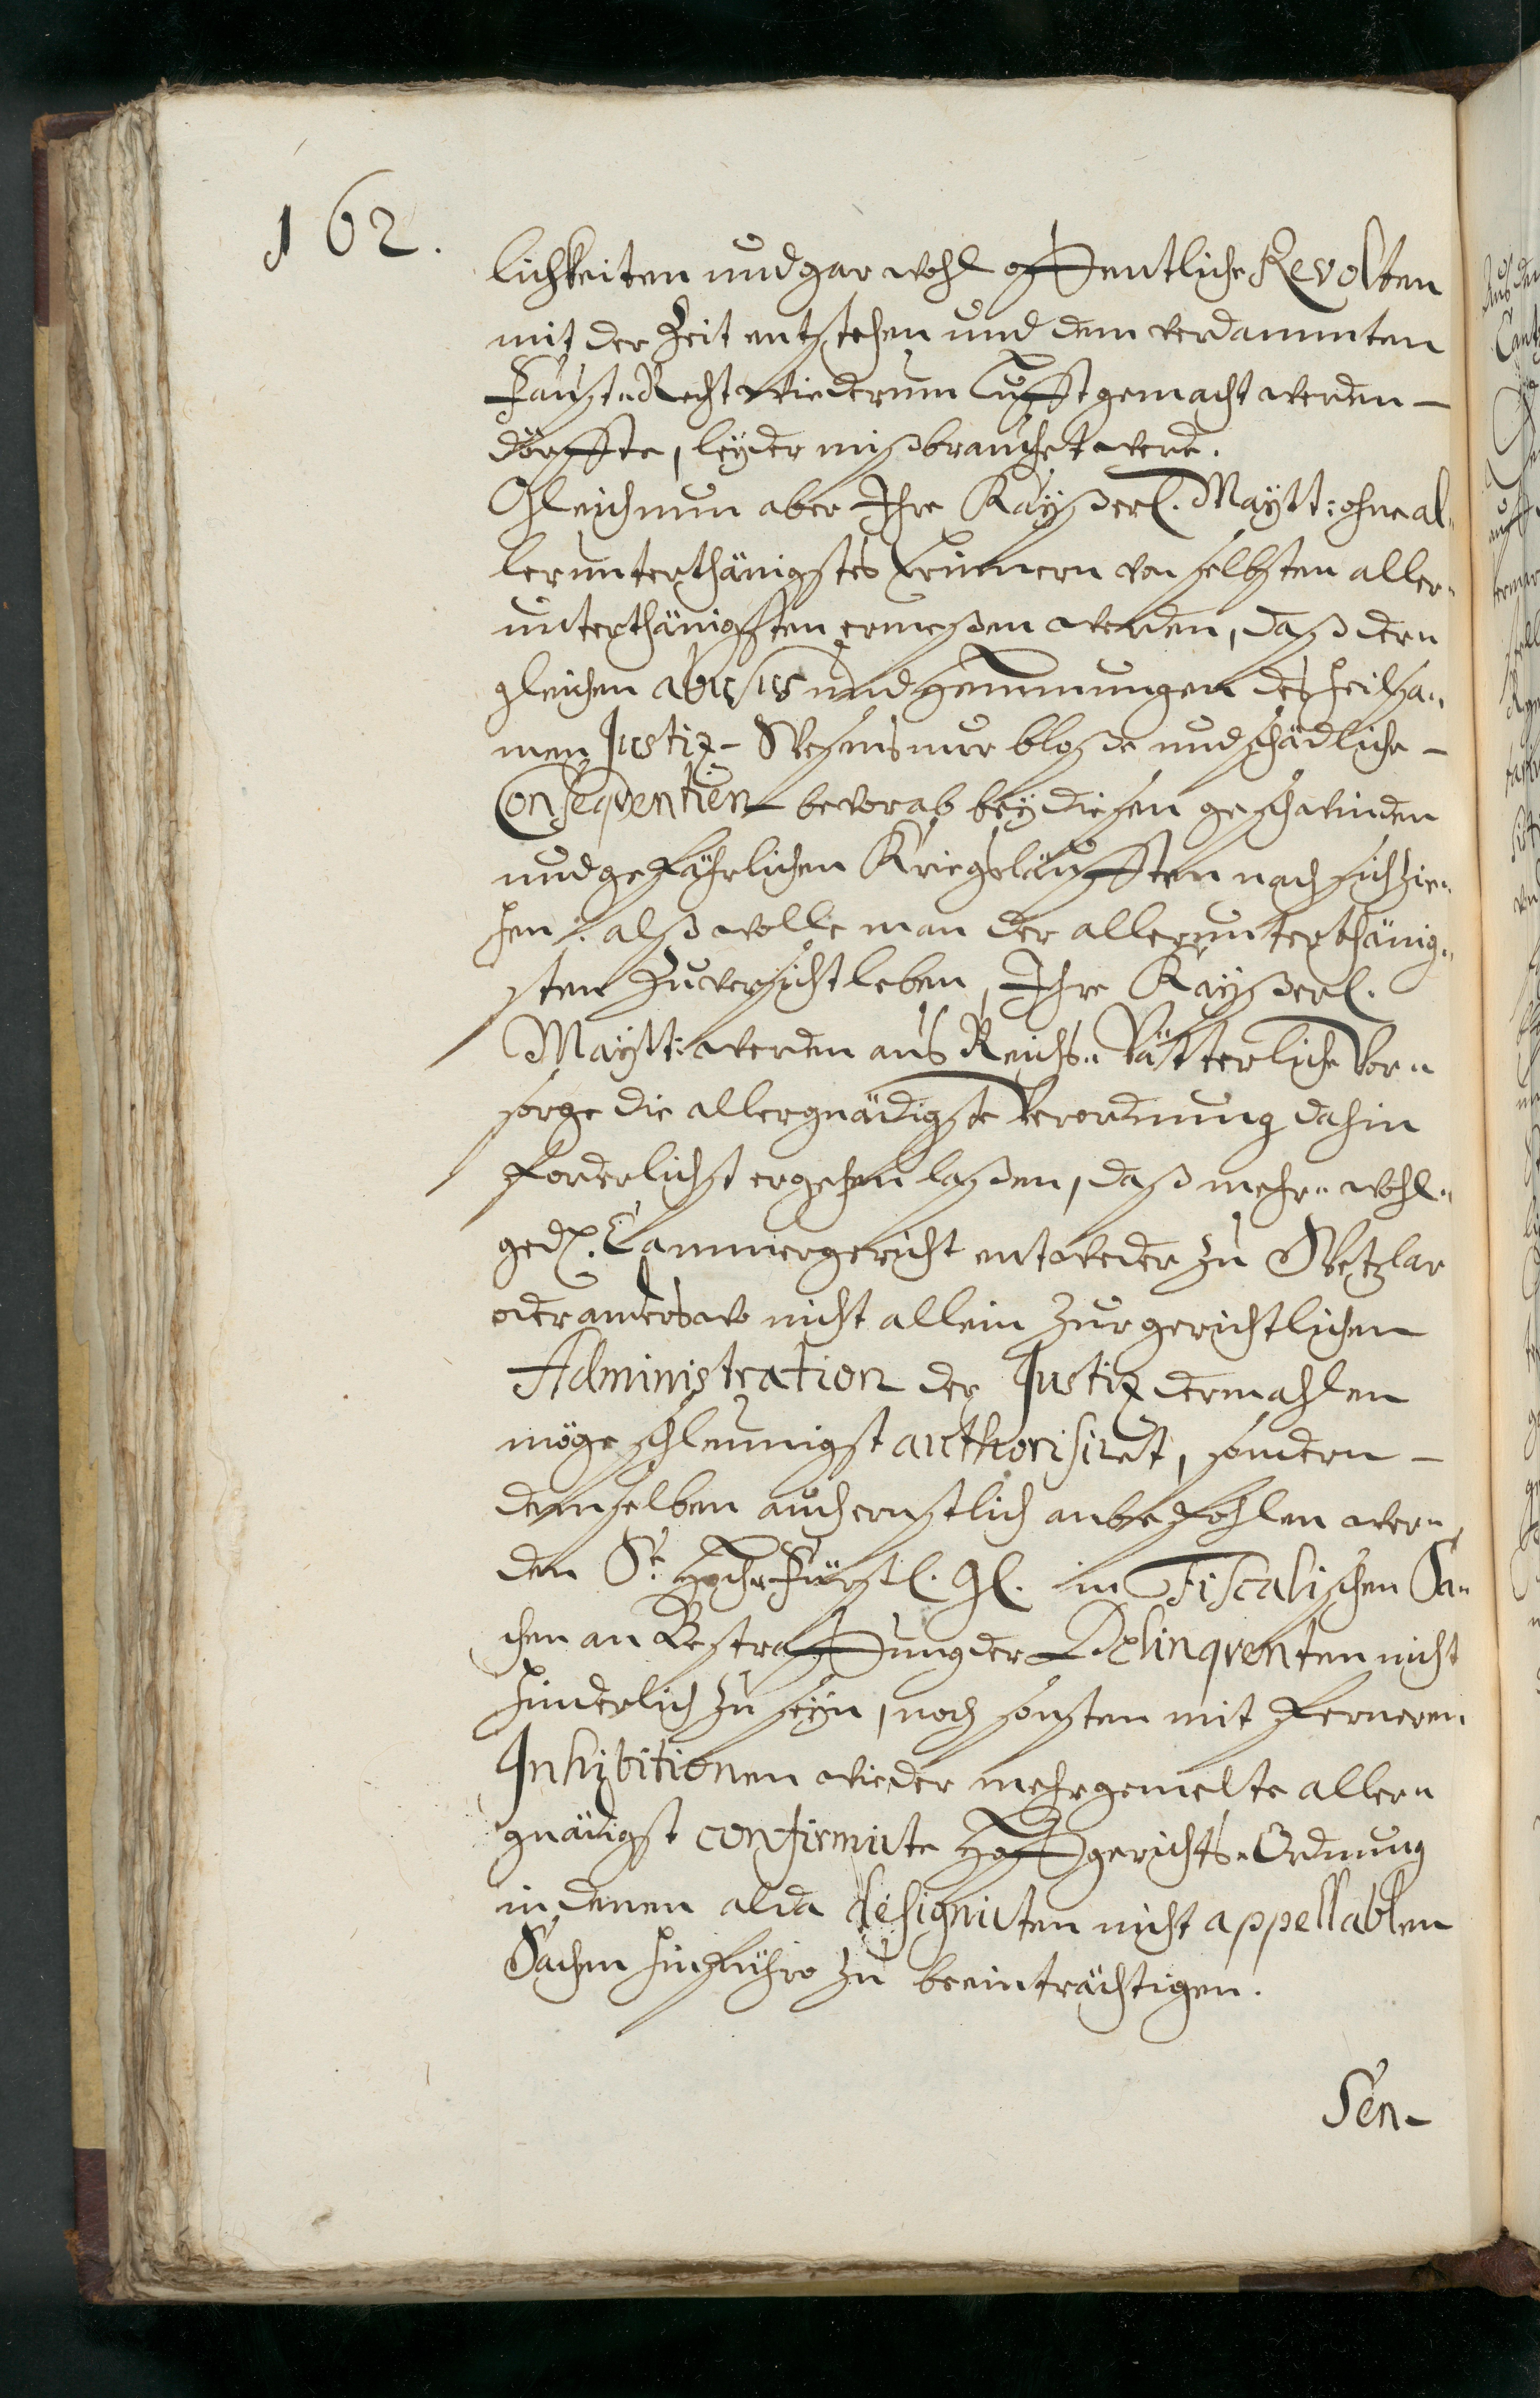 162.
lichkeiten und gar wohl offentliche Revolten
mit der Zeit entstehen und dem verdammten
Faust-Recht wiederum Lufft gemacht werden-
dörffte, leyder mißbrauchet werde.
Gleichnun aber Ihre Kayßerl. Maytt: ohne al-
lerunterthänigstes Erinnern von selbsten aller-
unterthänigsten ermeßen werden, daß der-
gleichen abusus und Hemmungen des heilsa-
men Justiz-Wesens nur bloße und schädliche-
Conseqventien bevorab bey diesen geschwinden
und gefährlichen Kriegsläufften nach sich zie-
hen: alß wolle man der allerunterthänig-
sten Zuversicht leben, Ihre Kayßerl.
Maytt: werden aus Reichs-Vätterliche Vor-
sorge die allergnädigste Verordnung dahin
forderlichst ergehen laßen, daß mehr-wohl-
ged. Cammergericht entweder zu Wetzlar
oder anderswo nicht allein zur gerichtlichen
Administration der Justiz dermahlen
möge schleunigst authorisiret, sondern-
demselben auch ernstlich anbefohlen wer-
den Sr. Hoch-Fürstl. Gl. in Fiscalischen Sa-
chen an Bestraffung der Delinqventen nicht
hinderlich zu seyn, noch sonsten mit ferneren
Inhibitionen wieder mehrgemelte aller-
gnädigst confirmirte Hoffgerichts-Ordnung
in denen alda designirten nicht appellablen
Sachen hinführo zu beeinträchtigen.
Sen-